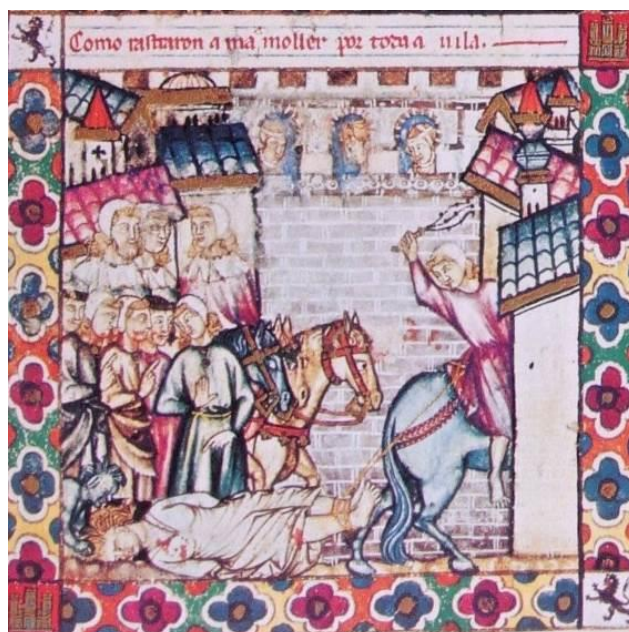 Como rastraron a má moller por toda a uila.